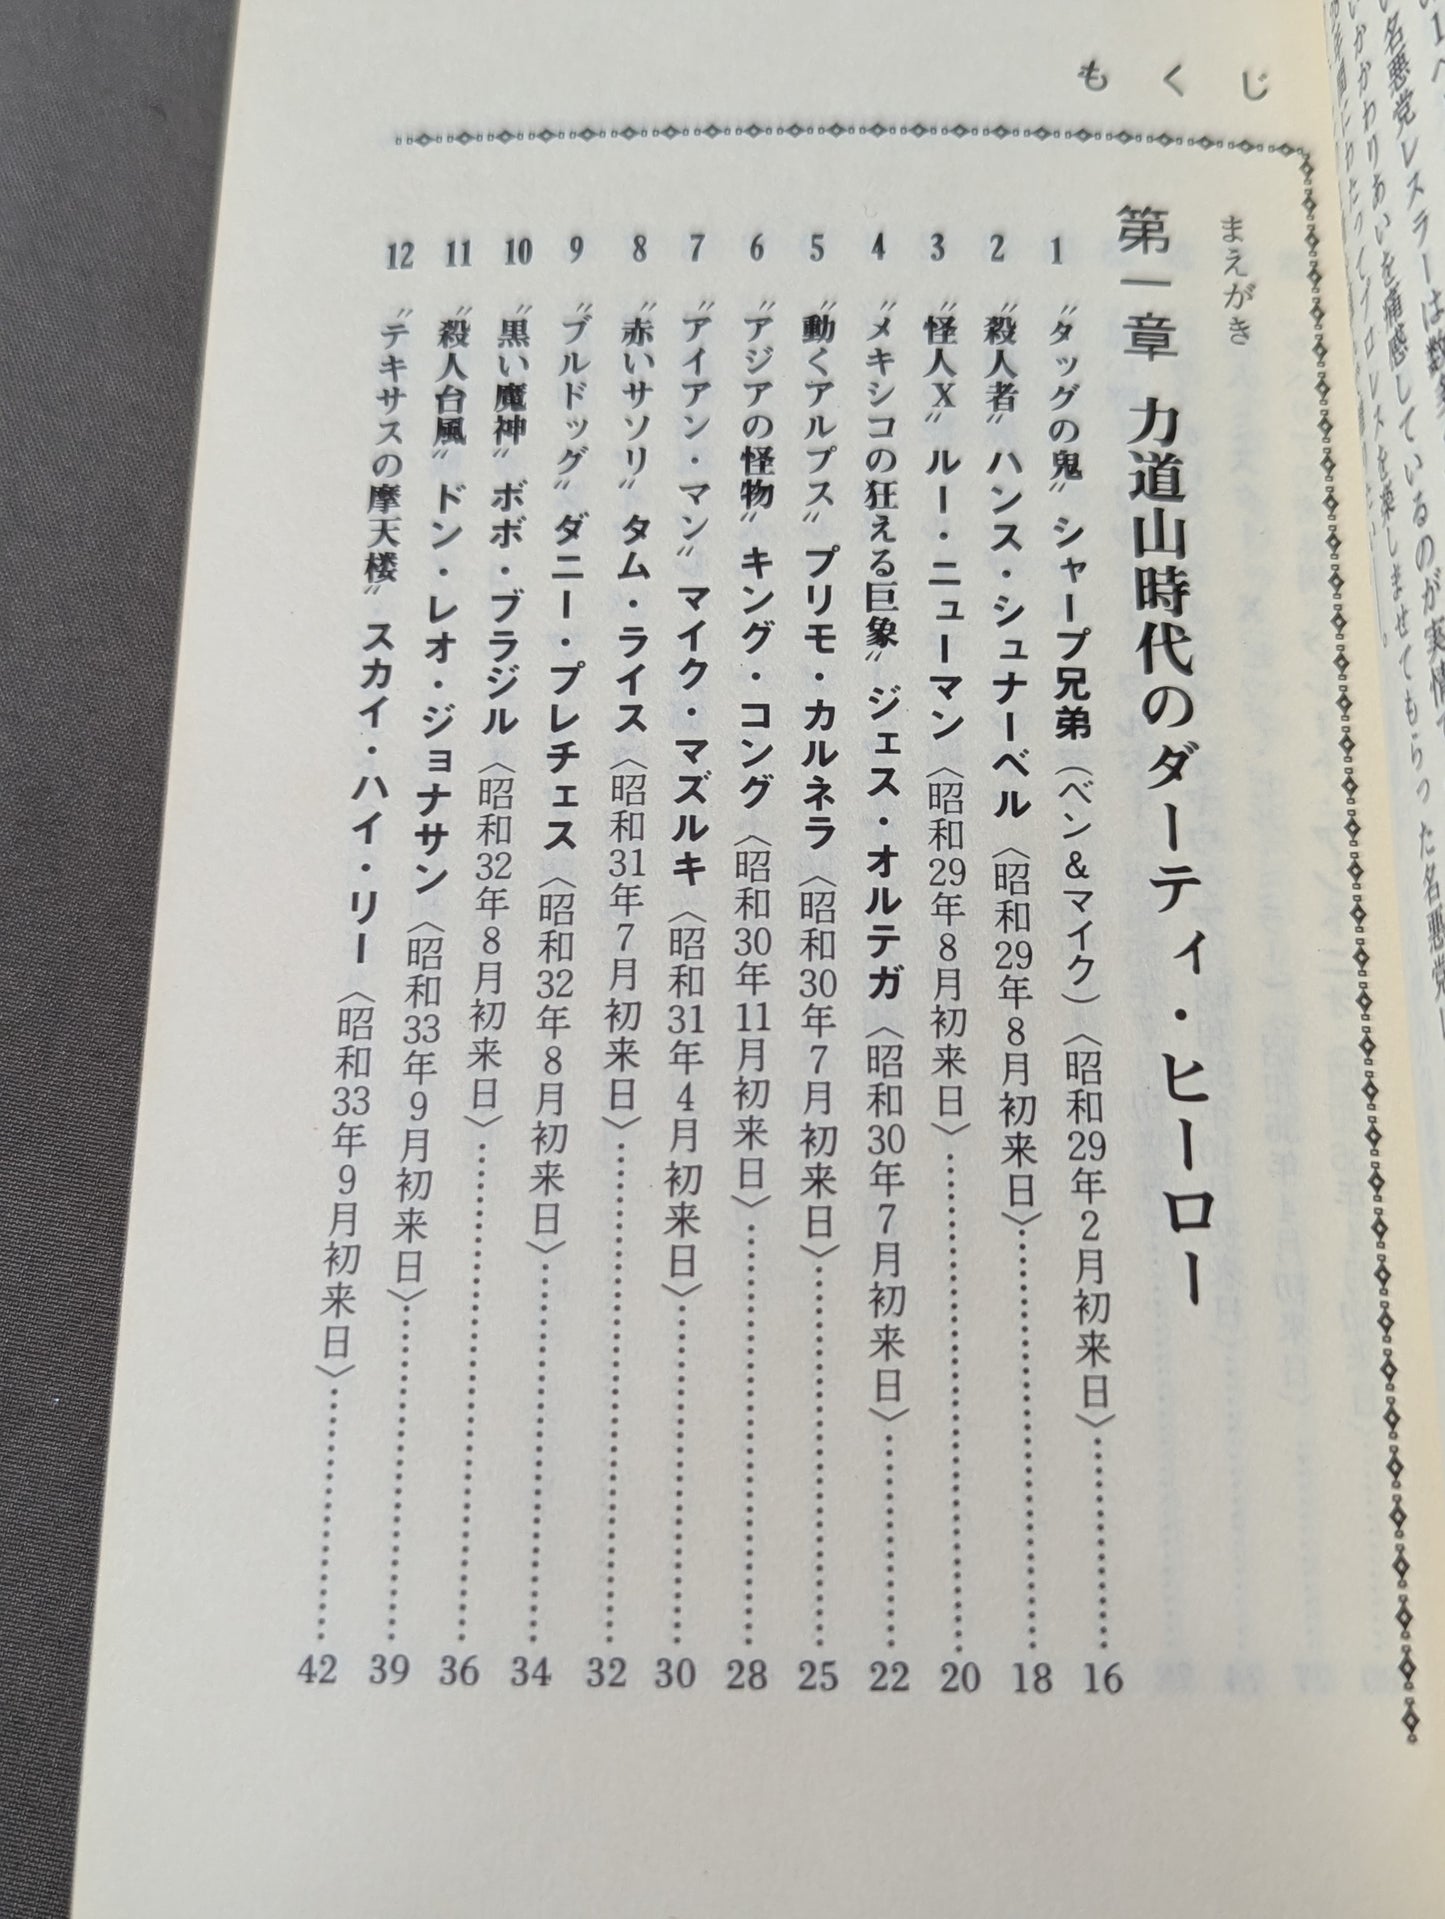 い名悪党レスラーは数多
いかかわりあいを痛感しているのが実情で
た名悪党
もくじ
まえがき
第一章 力道山時代のダーティ・ヒーロー
1 〝タッグの鬼〟シャープ兄弟（ベン＆マイク）〈昭和29年2月初来日〉……16
2 〝殺人者〟ハンス・シュナーベル〈昭和29年8月初来日〉……18
3 〝怪人X〟ルー・ニューマン〈昭和29年8月初来日〉……20
4 〝メキシコの狂える巨象〟ジェス・オルテガ〈昭和30年7月初来日〉……22
5 〝動くアルプス〟プリモ・カルネラ〈昭和30年7月初来日〉……25
6 〝アジアの怪物〟キング・コング〈昭和30年11月初来日〉……28
7 〝アイアン・マン〟マイク・マズルキ〈昭和31年4月初来日〉……30
8 〝赤いサソリ〟タム・ライス〈昭和31年7月初来日〉……32
9 〝ブルドッグ〟ダニー・プレチェス〈昭和32年8月初来日〉……34
10 〝黒い魔神〟ボボ・ブラジル〈昭和32年8月初来日〉……36
11 〝殺人台風〟ドン・レオ・ジョナサン〈昭和33年9月初来日〉……39
12 〝テキサスの摩天楼〟スカイ・ハイ・リー〈昭和33年9月初来日〉……42